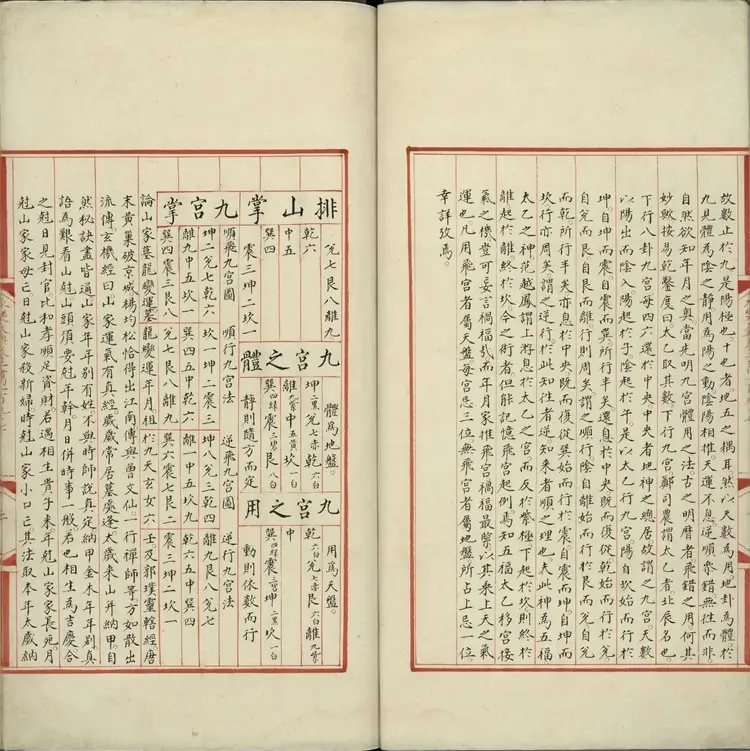 故數止於九是陽極也十也者地五之耦耳然以天數為用地卦為體於
九見體為陰之靜用為陽之動陰陽相推天運不息逆順參錯無往而非
自然欲知年月之奧當先明九宮體用之法古之明曆者飛錯之用何其
妙歟按易乾鑿度曰太乙取其數下行九宮鄭司農謂太乙者北辰名也
下行八卦九宮每四六還於中央中央者地神之總居故謂之九宮天數
以陽出而陰入陽起於子陰起於午是以太乙行九宮陽自坎始而行於
坤自坤而震自震而巽所行半矣還息於中央既而復從乾始而行於兊
自兊而艮自艮而離行則周矣謂之順行陰自離始而行於艮而兊自兊
而乾所行半矣亦息於中央既而復從巽始而行於震自震而坤自坤而
坎行亦周矣謂之逆行於此知往者逆知來者順之理也夫此神為五福
太乙之神范越鳳謂上游息於太乙之宮而反於紫極下起於坎則終於
離起於離終於坎今之術者但能記憶飛宮起例焉知五福太乙移宮接
氣之機豈可妄言禍福哉而年月家推飛宮禍福最緊以其乗上天之氣
運也凡用飛宮者屬天盤每宮忌三位無飛宮者屬地盤所占上忌一位
幸詳攷焉
排山掌九宮掌
兊七艮八離九
乾六
中五
巽四
震三坤二坎一
九宮之體
體為地盤
坤二黑兊七赤乾六白
離九紫中五黃坎一白
巽四綠震三碧艮八白
靜則隨方而定
九宮之用
用為天盤
乾六白兊七赤艮八白離九紫
中
巽四綠震三碧坤二黑坎一白
動則依數而行
順飛九宮圖 順行九宮法 逆飛九宮圖 逆行九宮法
坤二兊七乾六 坎一坤二震三 坤八兊三乾四 離九艮八兊七
離九中五坎一 巽四五中乾六 離一中五坎九 乾六五中巽四
巽四震三艮八 兊七艮八離九 巽六震七艮二 震三坤二坎一
論山家墓龍變運墓龍變運年月祖於九天玄女六壬及郭璞靈轄經唐
末黃巢破京城楊均松恰得出江南傳與曾文仙一行禪師等方如散出
流傳玄機經曰山家運氣有真經歲歲常居墓處逢太歲來山并納甲自
然秘訣盡皆通山家年年別有姓不與時師說真定納甲金木年年別真
語為艱看山尅山頭須要尅年幹月日併時事一般若也相生為吉慶合
之尅日見封官比和孝順足資財若遇相生貴子來年尅山家家長宛月
尅山家家母亡日尅山家殺新婦時尅山家小口亡其法取本年太歲納